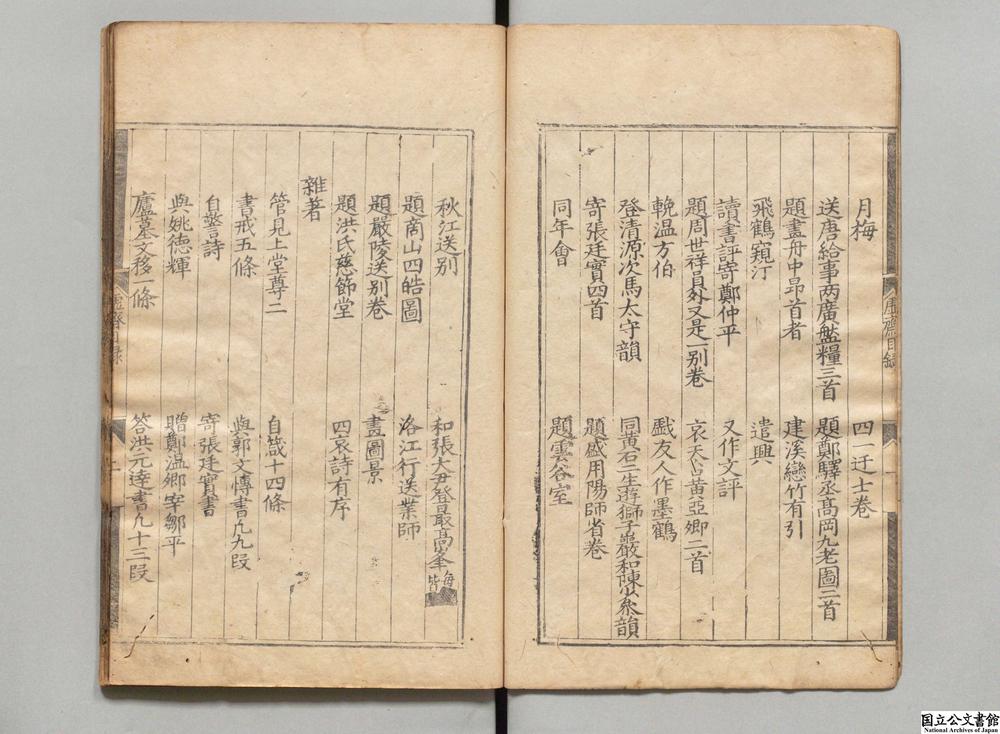 月梅　四一迂士卷
送唐給事两廣盤糧三首　題鄭驛丞髙岡九老圖二首
題畫舟中昂首者　建溪巒竹有引
飛鶴窺汀　遣興
讀書評寄鄭仲平　又作文評
題周世祥員外又是一別卷　哀天占黄亞卿二首
輓温方伯　戱友人作墨鶴
登清源次馬太守韻　同黄石二生遊獅子巖和陳少參韻
寄張廷實四首　題盛用陽師省卷
同年㑹　題雲谷室
虚齋目録
秋江送別　和張大尹登最髙峯
題商山四皓圖　洛江行送業師
題嚴陵送別卷　畫圖景
題洪氏慈節堂　四哀詩有序
雜著
管見上堂尊二　自箴十四條
書戒五條　與郭文愽書凡九叚
自警詩　寄張廷實書
與姚德輝　贈鄭温卿宰鄒平
廬墓文移一條　答洪元逹書凡十三叚
国立公文書館
National Archives of Japan